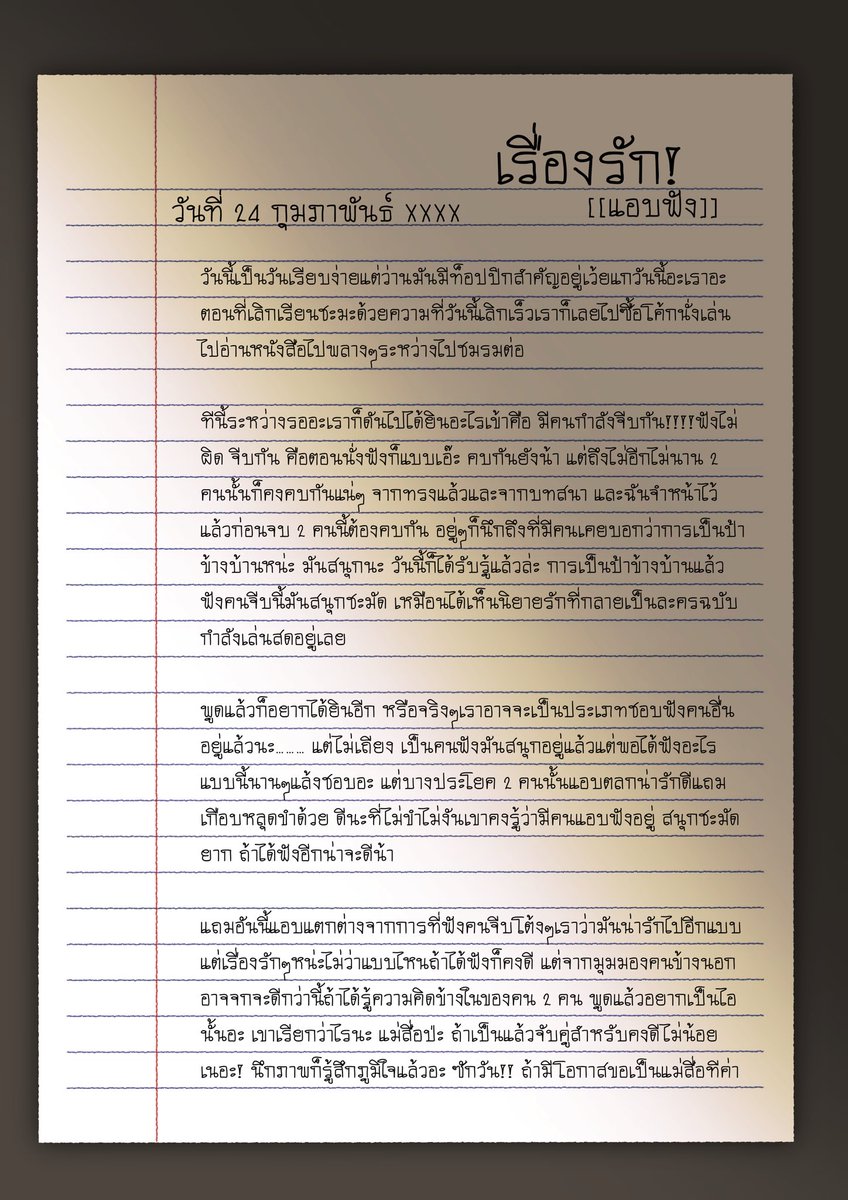 เรื่องรัก!
วันที่ 24 กุมภาพันธ์ xxxx
[[แอบฟัง]]
วันนี้เป็นวันเรียบง่ายแต่ว่านมันมีท็อปปิกสำคัญอยู่เว้ยแกวันนี้อะเราอะ
ตอนที่เลิกเรียนชะมะด้วยความที่วันนี้เลิกเร็วเราก็เลยไปซื้อโค้กนั่งเล่น
ไปอ่านหนังสือไปพลางๆระหว่างไปชมรมต่อ
ทีนี้ระหว่างรออะเราก็ดันไปได้ยินอะไรเข้าคือ มีคนกำลังจีบกัน!!!!ฟังไม่
ผิด จีบกัน คือตอนนั่งฟังก็แบบเอ๊ะ คบกันยังน้า แต่ถึงไม่อีกไม่นาน 2
คนนั้นก็คงคบกันแน่ๆ จากทรงแล้วและจากบทสนา และฉันจำหน้าไว้
แล้วก่อนจบ 2 คนนี้ต้องคบกัน อยู่ๆก็นึกถึงที่มีคนเคยบอกว่าการเป็นป้า
ข้างบ้านหน่ะ มันสนุกนะ วันนี้ก็ได้รับรู้แล้วล่ะ การเป็นป้าข้างบ้านแล้ว
ฟังคนจีบนี้มันสนุกชะมัด เหมือนได้เห็นนิยายรักที่กลายเป็นละครฉบับ
กำลังเล่นสดอยู่เลย
พูดแล้วก็อยากได้ยินอีก หรือจริงๆเราอาจจะเป็นประเภทชอบฟังคนอื่น
อยู่แล้วนะ……… แต่ไม่เถียง เป็นคนฟังมันสนุกอยู่แล้วแต่พอได้ฟังอะไร
แบบนี้นานๆแล้งชอบอะ แต่บางประโยค 2 คนนั้นแอบตลกน่ารักดีแถม
เกือบหลุดขำด้วย ดีนะที่ไม่ขำไม่งันเขาคงรู้ว่ามีคนแอบฟังอยู่ สนุกชะมัด
ยาก ถ้าได้ฟังอีกน่าจะดีน้า
แถมอันนี้แอบแตกต่างจากการที่ฟังคนจีบโต้งๆเราว่ามันน่ารักไปอีกแบบ
แต่เรื่องรักๆหน่ะไม่ว่าแบบไหนถ้าได้ฟังก็คงดี แต่จากมุมมองคนข้างนอก
อาจจกจะดีกว่านี้ถ้าได้รู้ความคิดข้างในของคน 2 คน พูดแล้วอยากเป็นไอ
นั้นอะ เขาเรียกว่าไรนะ แม่สื่อปะ ถ้าเป็นแล้วจับคู่สำหรับคงดีไม่น้อย
เนอะ! นึกภาพก็รู้สึกภูมิใจแล้วอะ ซักวัน!! ถ้ามีโอกาสขอเป็นแม่สื่อทีค่า